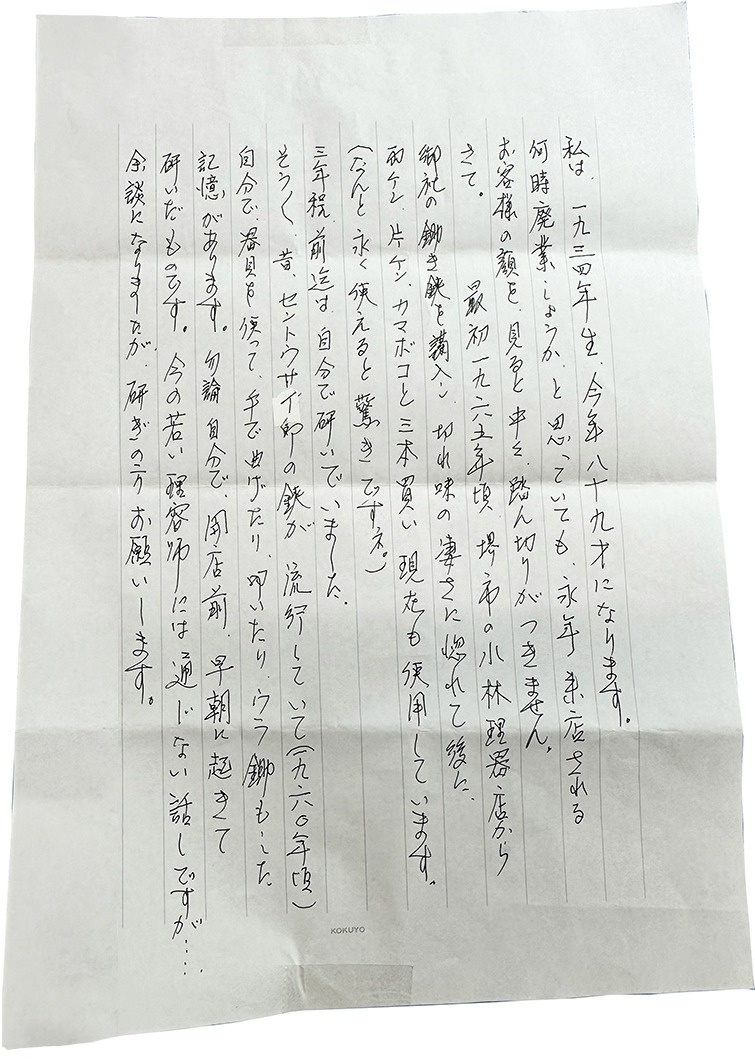 私は、一九三四年生、今年八十九才になります。
何時廃業しようか、と思っていても、永年来店される
お客様の顔を、見ると中々、踏ん切りがつきません。
さて。　最初一九六五年頃、堺市の小林理器店から
御社の鋤き鋏を購入し、切れ味の凄さに惚れて後に、
両ケン、片ケン、カマボコと三本買い、現在も使用しています。
(なんと永く使えると驚きですネ。)
三年程、前迄は、自分で研いでいました。
そうく、昔、セントウサイ印の鋏が、流行していて(一九六〇年頃)
自分で、器具を使って、手で曲げたり、叩いたり、ウラ鋤もした
記憶があります。勿論自分で、開店前、早朝に起きて
研いだものです。今の若い理容師には通じない話しですが‥‥
余談になりましたが、研ぎの方お願いします。
KOKUYO